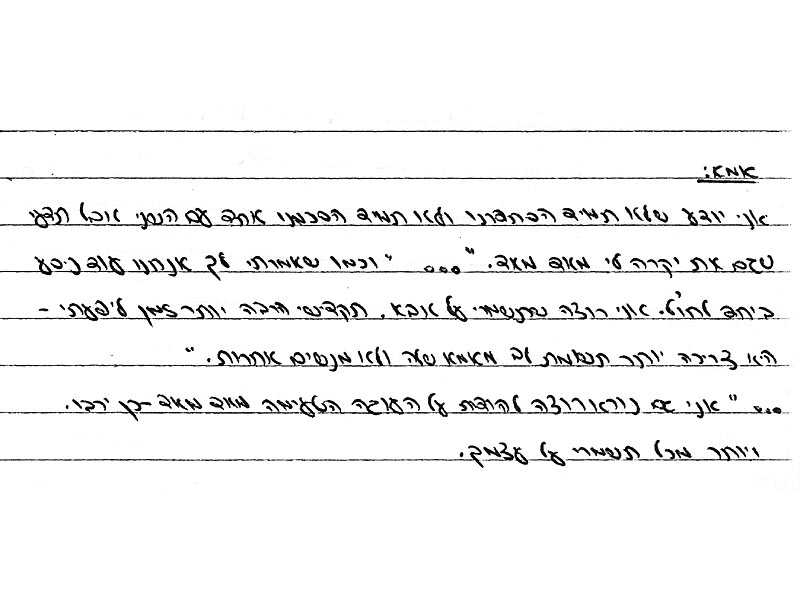 אמא:
אני יודע שלא תמיד הסתדרנו ולא תמיד הסכמתי איתך עם הנסי אבל תדעי
שגם את יקרה לי מאד מאד. "... " וכמו שאמרתי לך אנחנו עוד ניסע
ביחד לחו"ל. אני רוצה שתשמרי על אבא. תקדישי הרבה יותר זמן ליפעתי -
היא צריכה יותר תשומת לב מאמא שלה ולא מנשים אחרות. "
... " אני גם נורא רוצה להודות על העוגה הטעימה מאד מאד - כן ירבו.
ויותר מכל תשמרי על עצמך.